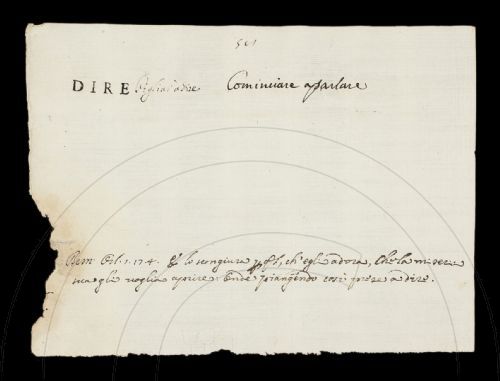 501
DIRE Pigliar a dire Cominciare a parlare
Bern. Orl. 1. 17. 4. E lo scongiura p quel, ch' egli adora, Che la miseria
sua gli voglia aprire: Ond' e' piangendo così prese a dire.